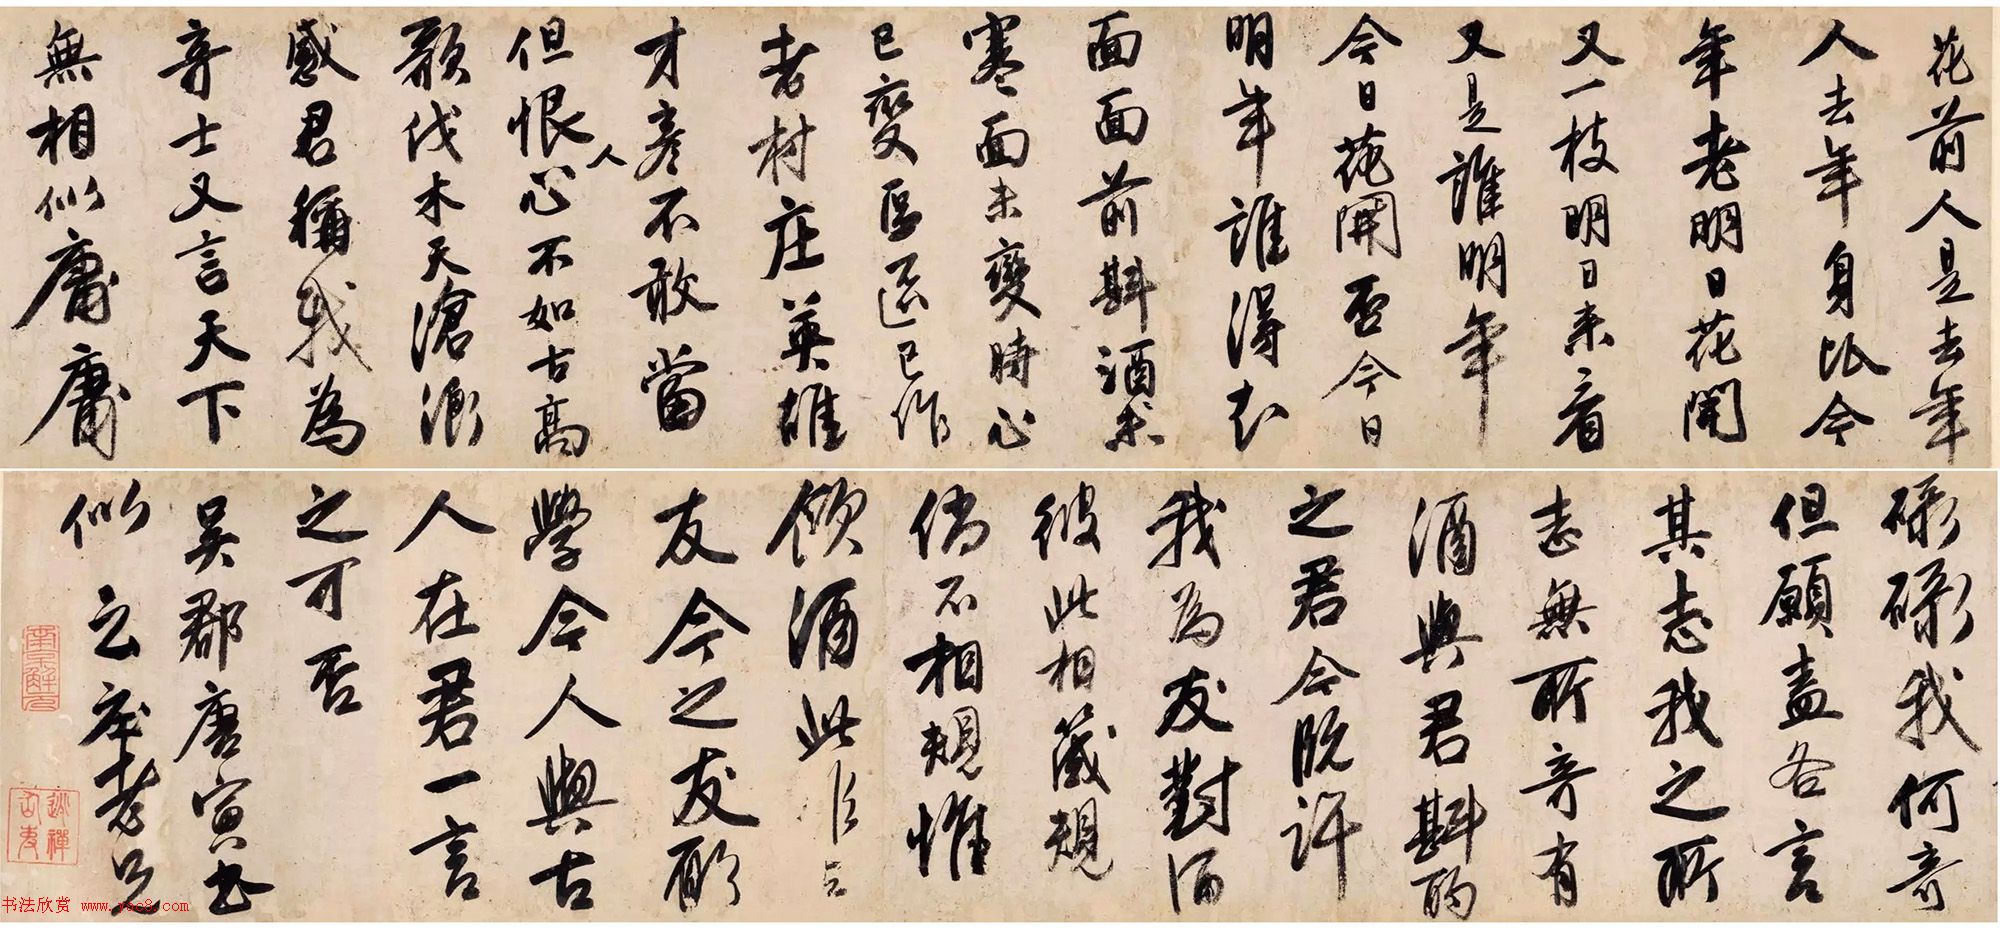 花前人是去年
人去年身比今
年老明日花開
又一枝明日来看
又是誰明年
今日花開否今日
明年誰得知
面面前斟酒酒未
寒面面未變時心
已變區區已作
老村庄英雄
才彥不敢當
但恨人心不如古高
歌伐木天滄浪
感君稱我為
奇士又言天下
無相似庸庸
碌碌我何奇
但願盍各言
其志我之所
志無所奇有
酒與君斟酌
之君今既許
我為友對酒
彼此相箴規
倘不相規惟
飲酒此
友今之友所
學今人與古
人在君一言
之可否
吳郡唐寅書
似立庵老兄
南京解元
逃禪仙吏
书法欣赏 www.yac8.com